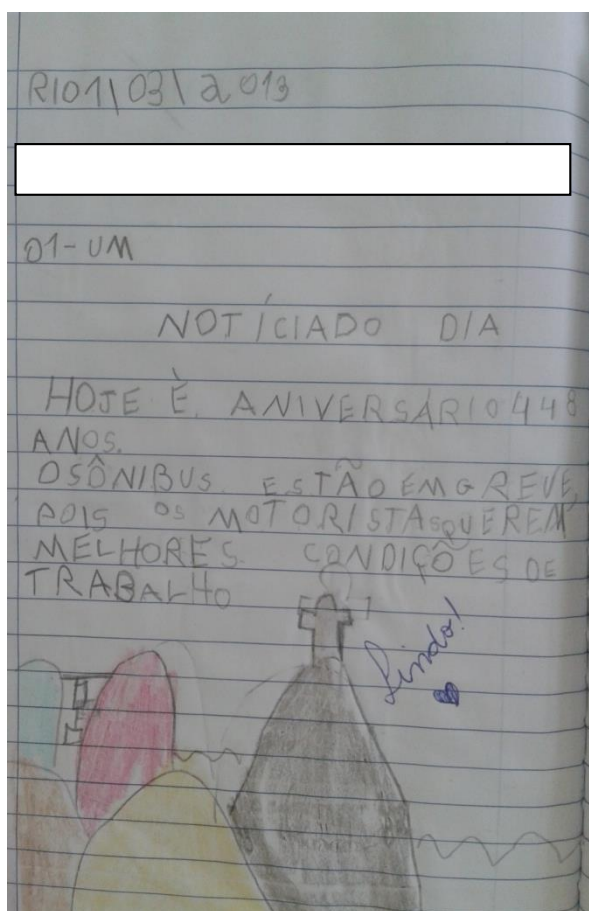 RIO1\03\2013
01-UM
NOTÍCIADO DIA
HOJE É ANIVERSÁRIO448
ANOS.
OSÔNIBUS ESTÃO EMGREVE,
POIS OS MOTORISTASQUEREM
MELHORES CONDIÇÕES DE
TRABALHO
Lindo!